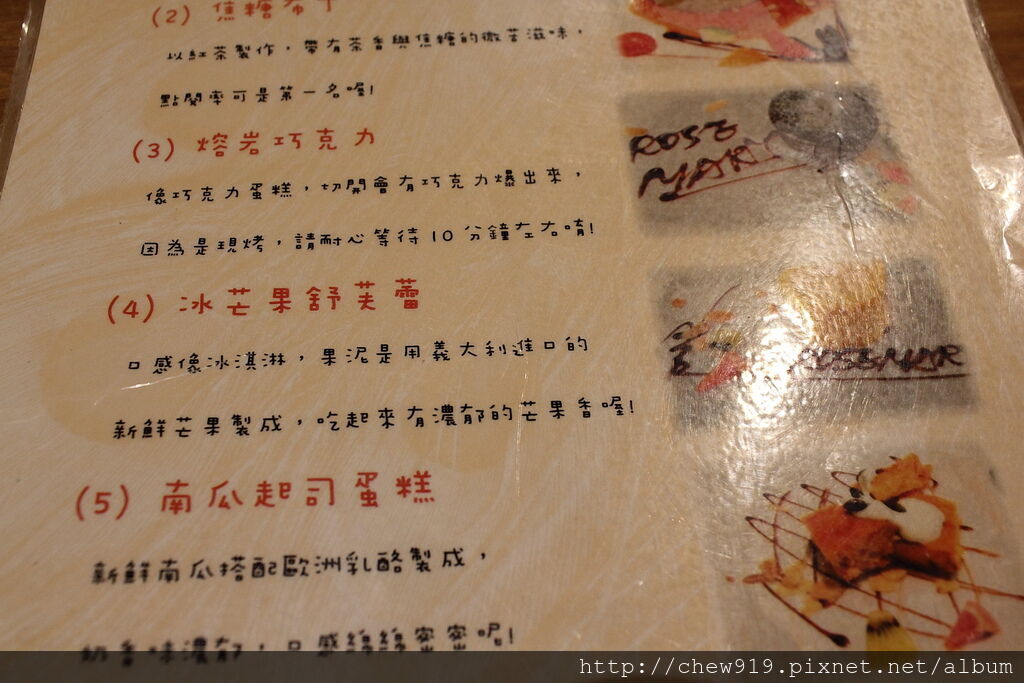 (2) 焦糖布丁
以紅茶製作，帶有茶香與焦糖的微苦滋味，
點閱率可是第一名喔!
(3) 熔岩巧克力
像巧克力蛋糕，切開會有巧克力爆出來，
因為是現烤，請耐心等待 10 分鐘左右唷!
(4) 冰芒果舒芙蕾
口感像冰淇淋，果泥是用義大利進口的
新鮮芒果製成，吃起來有濃郁的芒果香喔!
(5) 南瓜起司蛋糕
新鮮南瓜搭配歐洲乳酪製成，
奶香味濃郁，口感綿綿密密呢!
ROSE
MARY
ROSEMAR
http://chew919.pixnet.net/album